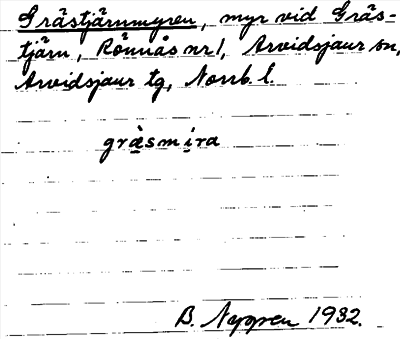 Grästjärnmyren, myr vid Gräs-
tjärn, Rönnäs nr 1, Arvidsjaur sn,
Arvidsjaur tg, Norrb. l.
gräsmira
B. Nygren 1932.